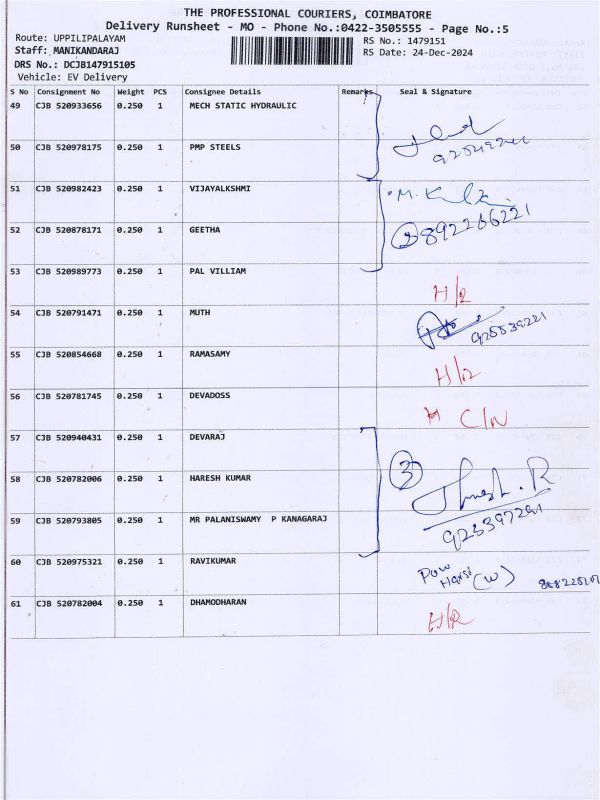 THE PROFESSIONAL COURIERS, COIMBATORE
Delivery Runsheet - MO - Phone No.:0422-3505555 - Page No.:5
Route: UPPILIPALAYAM
RS No.: 1479151
Staff: MANIKANDARAJ
RS Date: 24-Dec-2024
DRS No.: DCJB147915105
Vehicle: EV Delivery
S No Consignment No Weight PCS Consignee Details Remarks Seal & Signature
49 CJB 520933656 0.250 1 MECH STATIC HYDRAULIC
50 CJB 520978175 0.250 1 PMP STEELS
51 CJB 520982423 0.250 1 VIJAYALKSHMI
52 CJB 520878171 0.250 1 GEETHA
53 CJB 520989773 0.250 1 PAL VILLIAM
H/R
54 CJB 520791471 0.250 1 MUTH
55 CJB 520854668 0.250 1 RAMASAMY
H/R
56 CJB 520781745 0.250 1 DEVADOSS
C/N
57 CJB 520940431 0.250 1 DEVARAJ
3
58 CJB 520782006 0.250 1 HARESH KUMAR
59 CJB 520793805 0.250 1 MR PALANISWAMY P KANAGARAJ
60 CJB 520975321 0.250 1 RAVIKUMAR
(W)
61 CJB 520782004 0.250 1 DHAMODHARAN
H/R